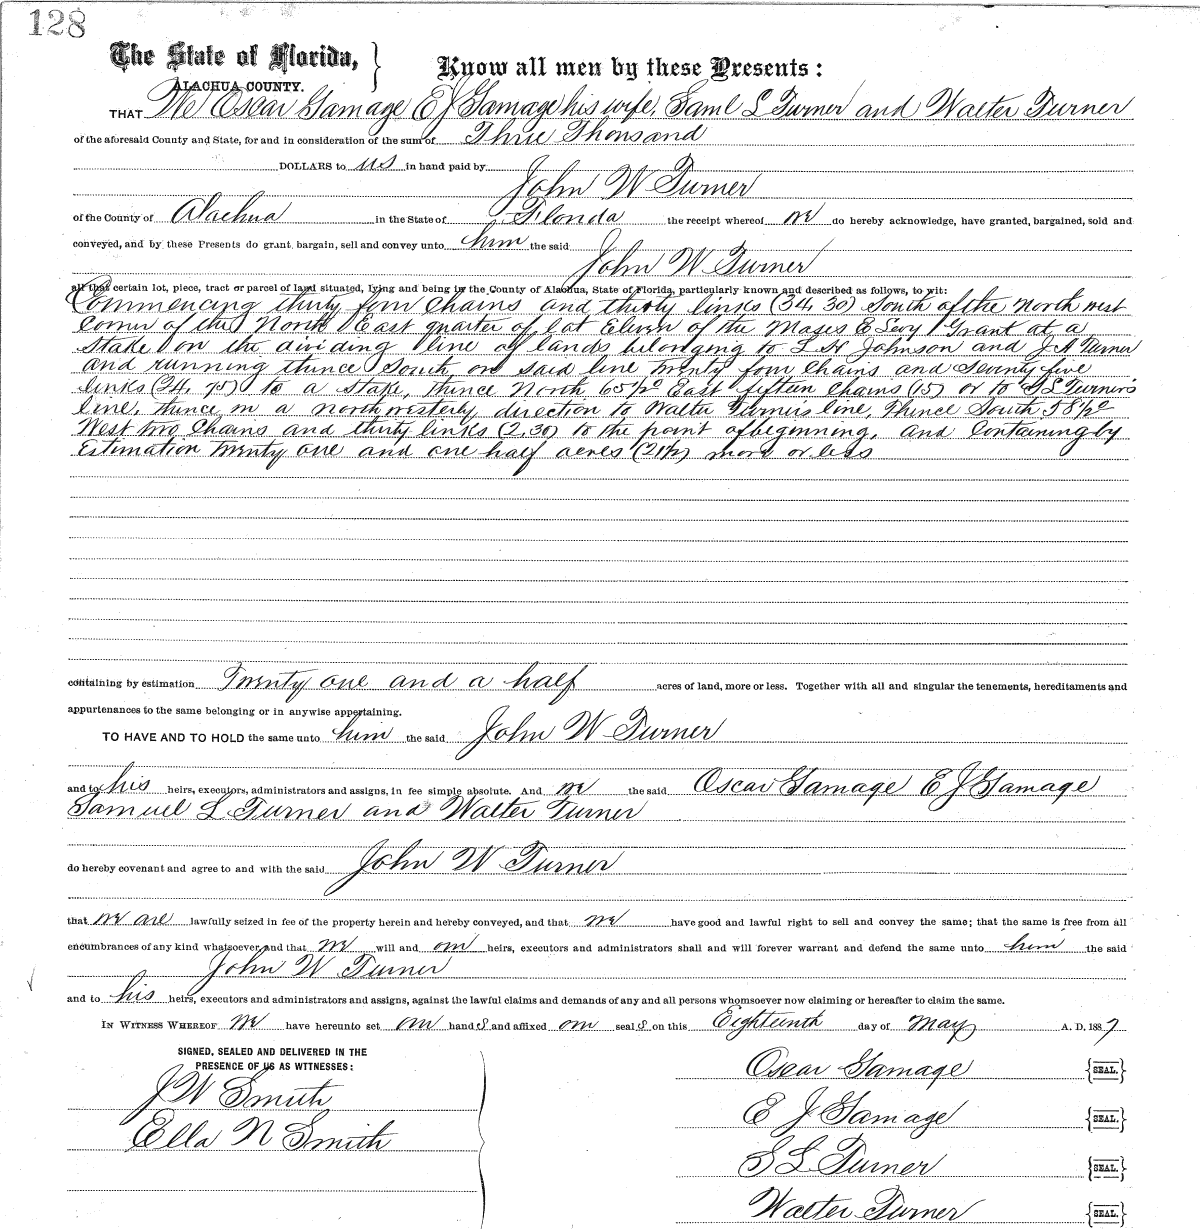 128
The State of Florida,
ALACHUA COUNTY.
Know all men by these Presents:
THAT We Oscar Gamage E J Gamage his wife, Saml L Turner and Walter Turner
of the aforesaid County and State, for and in consideration of the sum of Three Thousand
DOLLARS to us in hand paid by
John W Turner
of the County of Alachua in the State of Florida the receipt whereof we do hereby acknowledge, have granted, bargained, sold and
conveyed, and by these Presents do grant, bargain, sell and convey unto him the said
John W Turner
all that certain lot, piece, tract or parcel of land situated, lying and being in the County of Alachua, State of Florida, particularly known and described as follows, to wit:
Commencing thirty four Chains and thirty links (34,30) South of the North west
Corner of the North East quarter of lot Eleven of the Moses E Levy Grant at a
Stake on the dividing line of lands belonging to L H Johnson and J A Turner
and running thence South, on said line Twenty four Chains and Seventy five
links (24,75) to a Stake, thence North 65½° East fifteen Chains (15) or to Turner's
line, thence in a northwesterly direction to Walter Turners line, Thence South 58½°
West two Chains and thirty links (2,30) to the point of beginning, and Containing by
Estimation Twenty one and one half acres (21½) more or less
containing by estimation Twenty one and a half acres of land, more or less. Together with all and singular the tenements, hereditaments and
appurtenances to the same belonging or in anywise appertaining.
TO HAVE AND TO HOLD the same unto him the said John W Turner
and to his heirs, executors, administrators and assigns, in fee simple absolute. And we the said Oscar Gamage E J Gamage
Samuel L Turner and Walter Turner
do hereby covenant and agree to and with the said John W Turner
that we are lawfully seized in fee of the property herein and hereby conveyed, and that we have good and lawful right to sell and convey the same; that the same is free from all
encumbrances of any kind whatsoever, and that we will and our heirs, executors and administrators shall and will forever warrant and defend the same unto him the said
John W Turner
and to his heirs, executors and administrators and assigns, against the lawful claims and demands of any and all persons whomsoever now claiming or hereafter to claim the same.
IN WITNESS WHEREOF we have hereunto set our hands and affixed our seals on this Eighteenth day of May A. D. 1887
SIGNED, SEALED AND DELIVERED IN THE
PRESENCE OF US AS WITNESSES:
J W Smith
Ella N Smith
Oscar Gamage {SEAL.}
E J Gamage {SEAL.}
S L Turner {SEAL.}
Walter Turner {SEAL.}